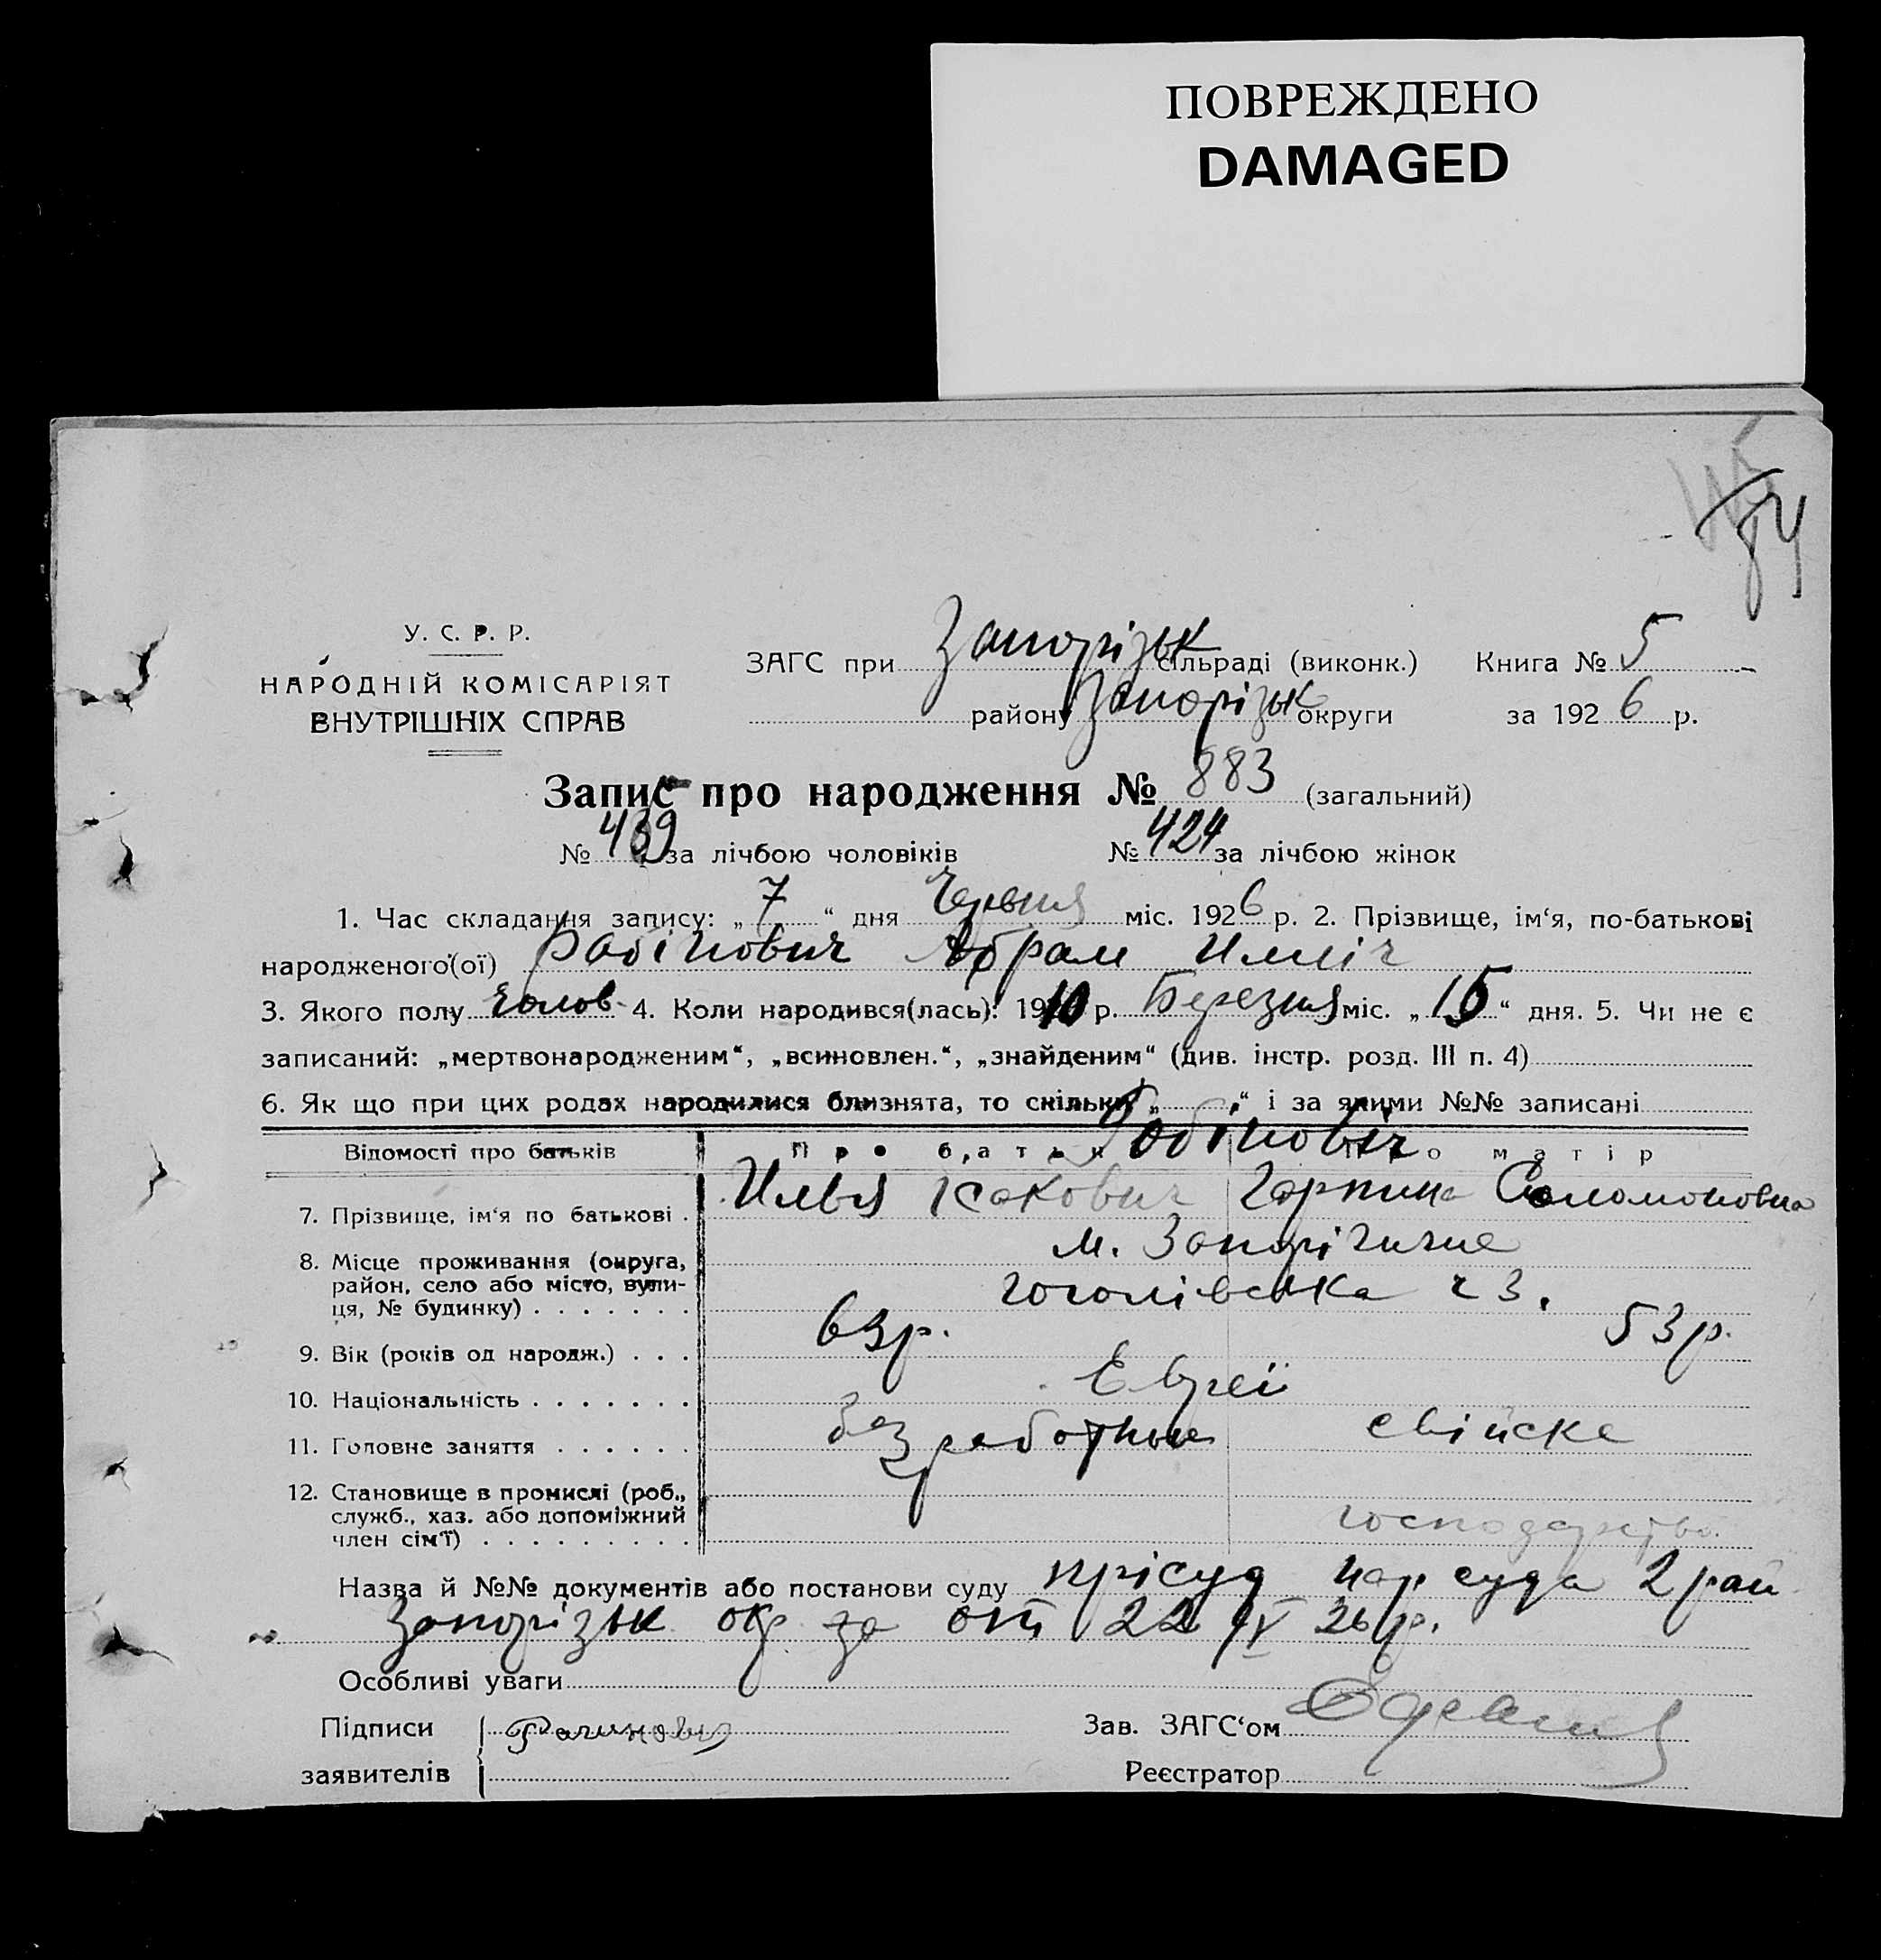 ПОВРЕЖДЕНО
DAMAGED
84
У. С. Р. Р.
НАРОДНІЙ КОМІСАРІЯТ
ВНУТРІШНІХ СПРАВ
ЗАГС при Запорізьк сільраді (виконк.) Книга № 5
району Запорізьк округи за 1926 р.
Запис про народження № 883 (загальний)
№ 439 за лічбою чоловіків № 424 за лічбою жінок
1. Час складання запису: „7“ дня Червня міс. 1926 р. 2. Прізвище, ім‘я, по-батькові
народженого(ої) Рабінович Абрам Ілліч
3. Якого полу Чолов 4. Коли народився(лась): 1910 р. Березня міс. „15“ дня. 5. Чи не є
записаний: „мертвонародженим“, „всиновлен.“, „знайденим“ (див. інстр. розд. III п. 4)
6. Як що при цих родах народилися близнята, то скільки „ “ і за якими №№ записані
Відомості про батьків Про батька Про матір
Рабінович
7. Прізвище, ім‘я по батькові . Илья Ісакович Гарпина Соломоновна
8. Місце проживання (округа, м. Запоріжжие
район, село або місто, вули-
ця, № будинку) . . . . . . . гоголівська ч 3.
9. Вік (років од народж.) . . . 63р. 53р.
10. Національність . . . . . . . Евреї
11. Головне заняття . . . . . . Безработный свійске
12. Становище в промислі (роб.,
служб., хаз. або допоміжний
член сім‘ї) . . . . . . . . . господарство.
Назва й №№ документів або постанови суду прісуд нар суда 2 рай
Запорізьк окр. за от 22 IV 26 р.
Особливі уваги
Підписи Рабинович Зав. ЗАГС‘ом
заявителів Реєстратор